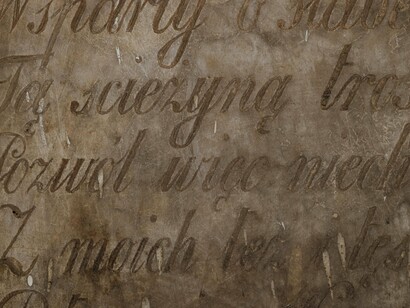 Wsparty o
Tą ścieżyną tros
Pozwól więc niech
Z moich łez